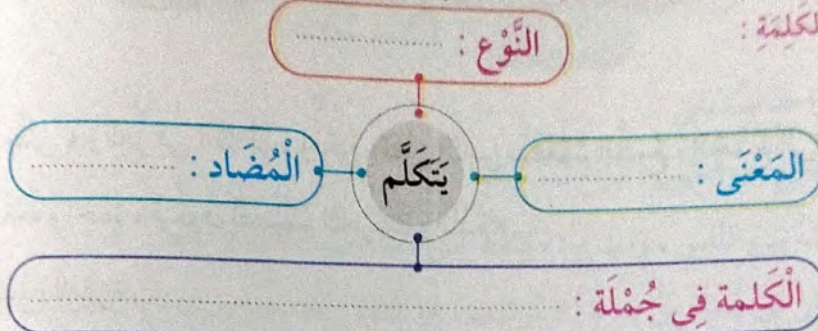 لكَلِمَةِ :
النَّوْع : ....................
المَعْنَى : ....................
يَتَكَلَّم
الْمُضَاد : ....................
الْكَلمة فِى جُمْلَة : ....................